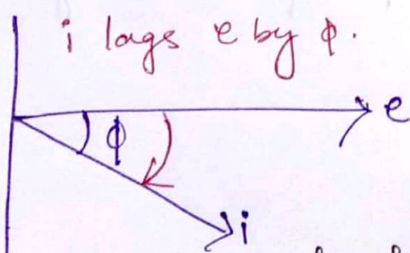 i lags e by ϕ.
e
ϕ
i